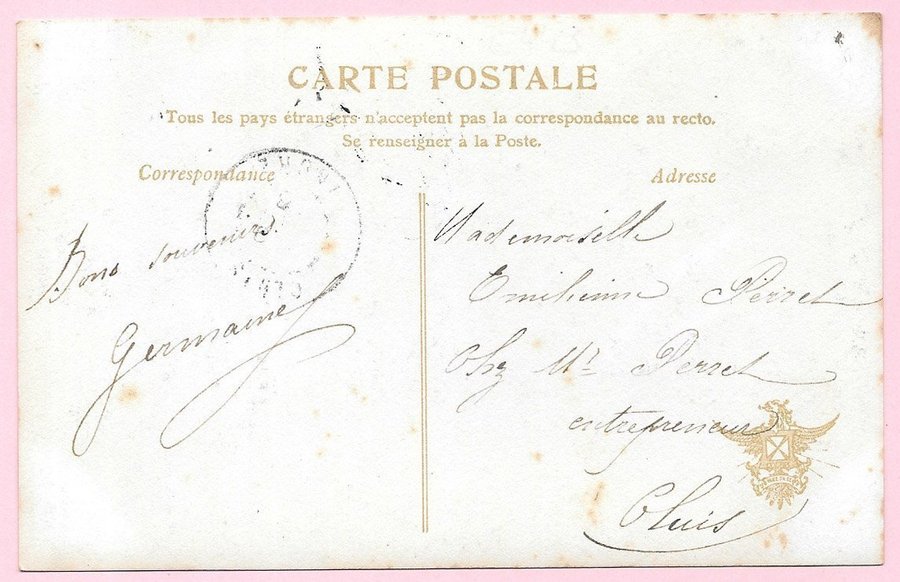 CARTE POSTALE
Tous les pays étrangers n'acceptent pas la correspondance au recto.
Se renseigner à la Poste.
Correspondance
Adresse
Bons souvenirs
Germaine
Mademoiselle
Emilienne Perret
Chz Mr Perret
entrepreneur
Cluis